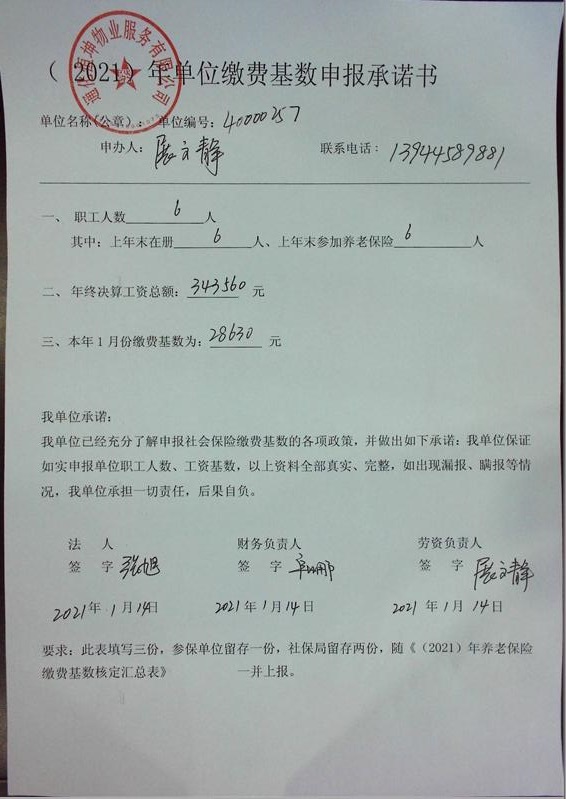 （2021）年单位缴费基数申报承诺书
物业服务有限公司
单位名称(公章)： 单位编号：40000257
申办人：展文静 联系电话：13944589881
一、 职工人数 6 人
其中：上年末在册 6 人、上年末参加养老保险 6 人
二、 年终决算工资总额：343560 元
三、本年1月份缴费基数为：28630 元
我单位承诺：
我单位已经充分了解申报社会保险缴费基数的各项政策，并做出如下承诺：我单位保证
如实申报单位职工人数、工资基数，以上资料全部真实、完整，如出现漏报、瞒报等情
况，我单位承担一切责任，后果自负。
法 人 财务负责人 劳资负责人
签 字 张旭 签 字 签 字 展文静
2021年1月14日 2021年1月14日 2021年1月14日
要求：此表填写三份，参保单位留存一份，社保局留存两份，随《（2021）年养老保险
缴费基数核定汇总表》 一并上报。